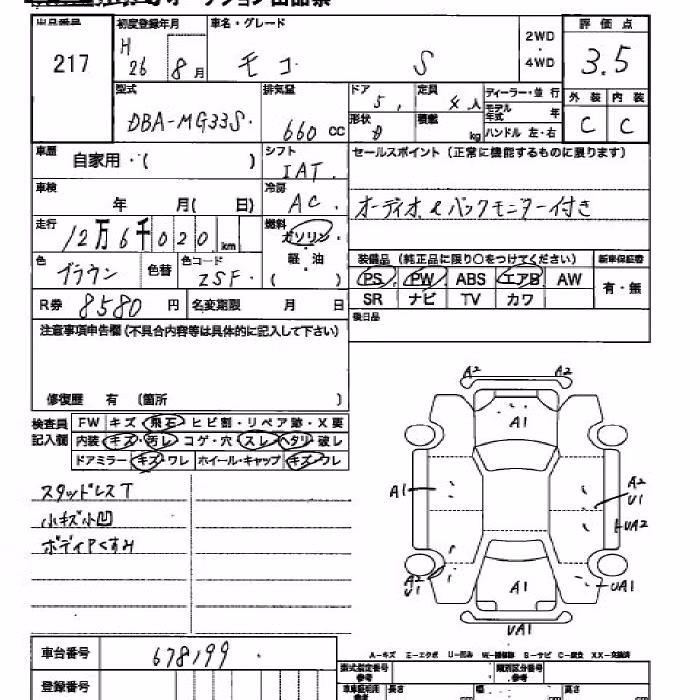 出品番号 217
初度登録年月 H 26 8月
車名・グレード モコ S
2WD・4WD
評価点 3.5
外装 内装
C C
型式 DBA-MG33S
排気量 660 CC
ドア 5 定員 4人 ディーラー・並行
形状 積載 kg モデル年式 年
ハンドル 左・右
車歴 自家用・( )
シフト IAT
セールスポイント (正常に機能するものに限ります)
車検 年 月( 日)
冷房 AC
オーディオ&バックモニター付き
走行 12万6千020km
燃料 ガソリン・軽油( )
色 ブラウン 色替 色コード ZSF
装備品 (純正品に限り○をつけてください) 新車保証書
PS PW ABS エアB AW 有・無
SR ナビ TV カワ
R券 8580円 名変期限 月 日
後日品
注意事項申告欄 (不具合内容等は具体的に記入して下さい)
修復歴 有 (箇所 )
検査員記入欄
FW キズ・飛石・ヒビ割・リペア跡・X要
内装 キズ・汚レ・コゲ・穴・スレ・ヘタリ・破レ
ドアミラー キズ・ワレ ホイール・キャップ キズ・ワレ
スタッドレスT
小キズ小凹
ボディPくすみ
A2 A2
A1
A1
A2
U1
UA2
A2
U1
A1
UA1
UA1
A-キズ E-エクボ U-凹み W-補修跡 S-サビ C-腐食 XX-交換済
車台番号 678199
登録番号
型式指定番号 参考 類別区分番号 参考
車車証明用 参考 長さ 幅 高さ